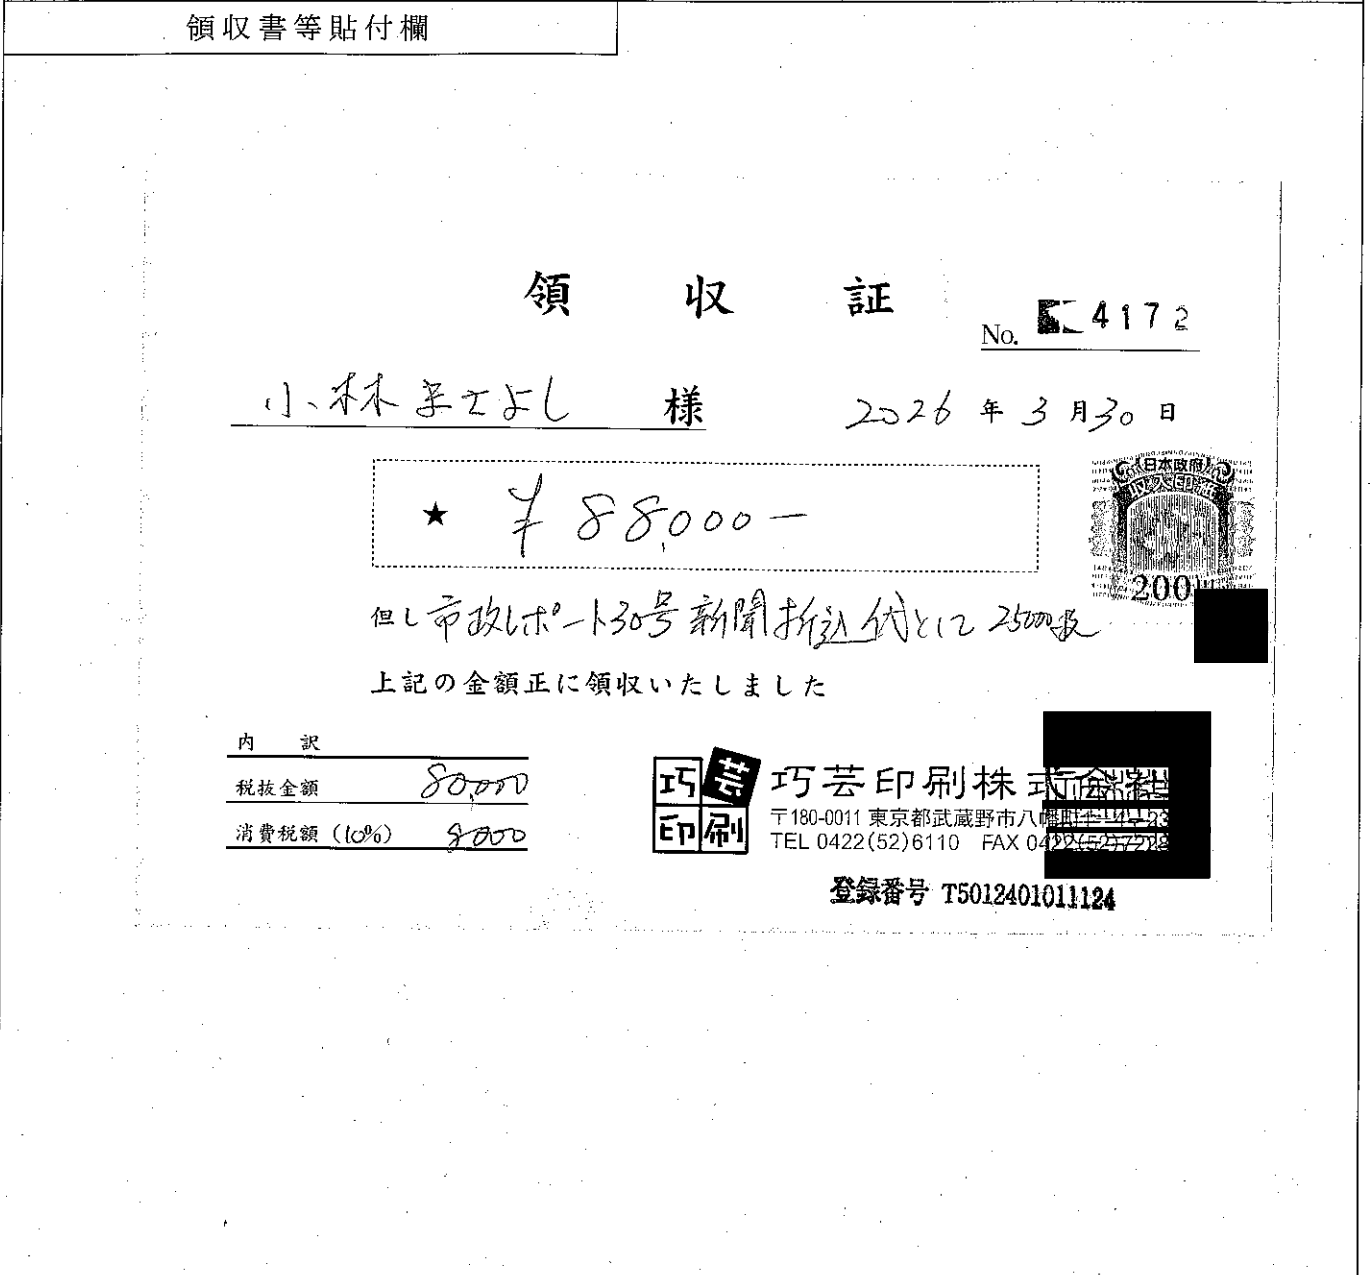 領収書等貼付欄
領収証
No. 4172
小林まさよし 様 2026年3月30日
日本政府
収入印紙
200円
★ ¥88,000-
但し 市政レポート30号新聞折込代として 25000枚
上記の金額正に領収いたしました
内訳
税抜金額 80,000
消費税額(10%) 8000
巧芸印刷
巧芸印刷株式会社
〒180-0011 東京都武蔵野市八幡町
TEL 0422(52)6110 FAX 0422(52)
登録番号 T5012401011124